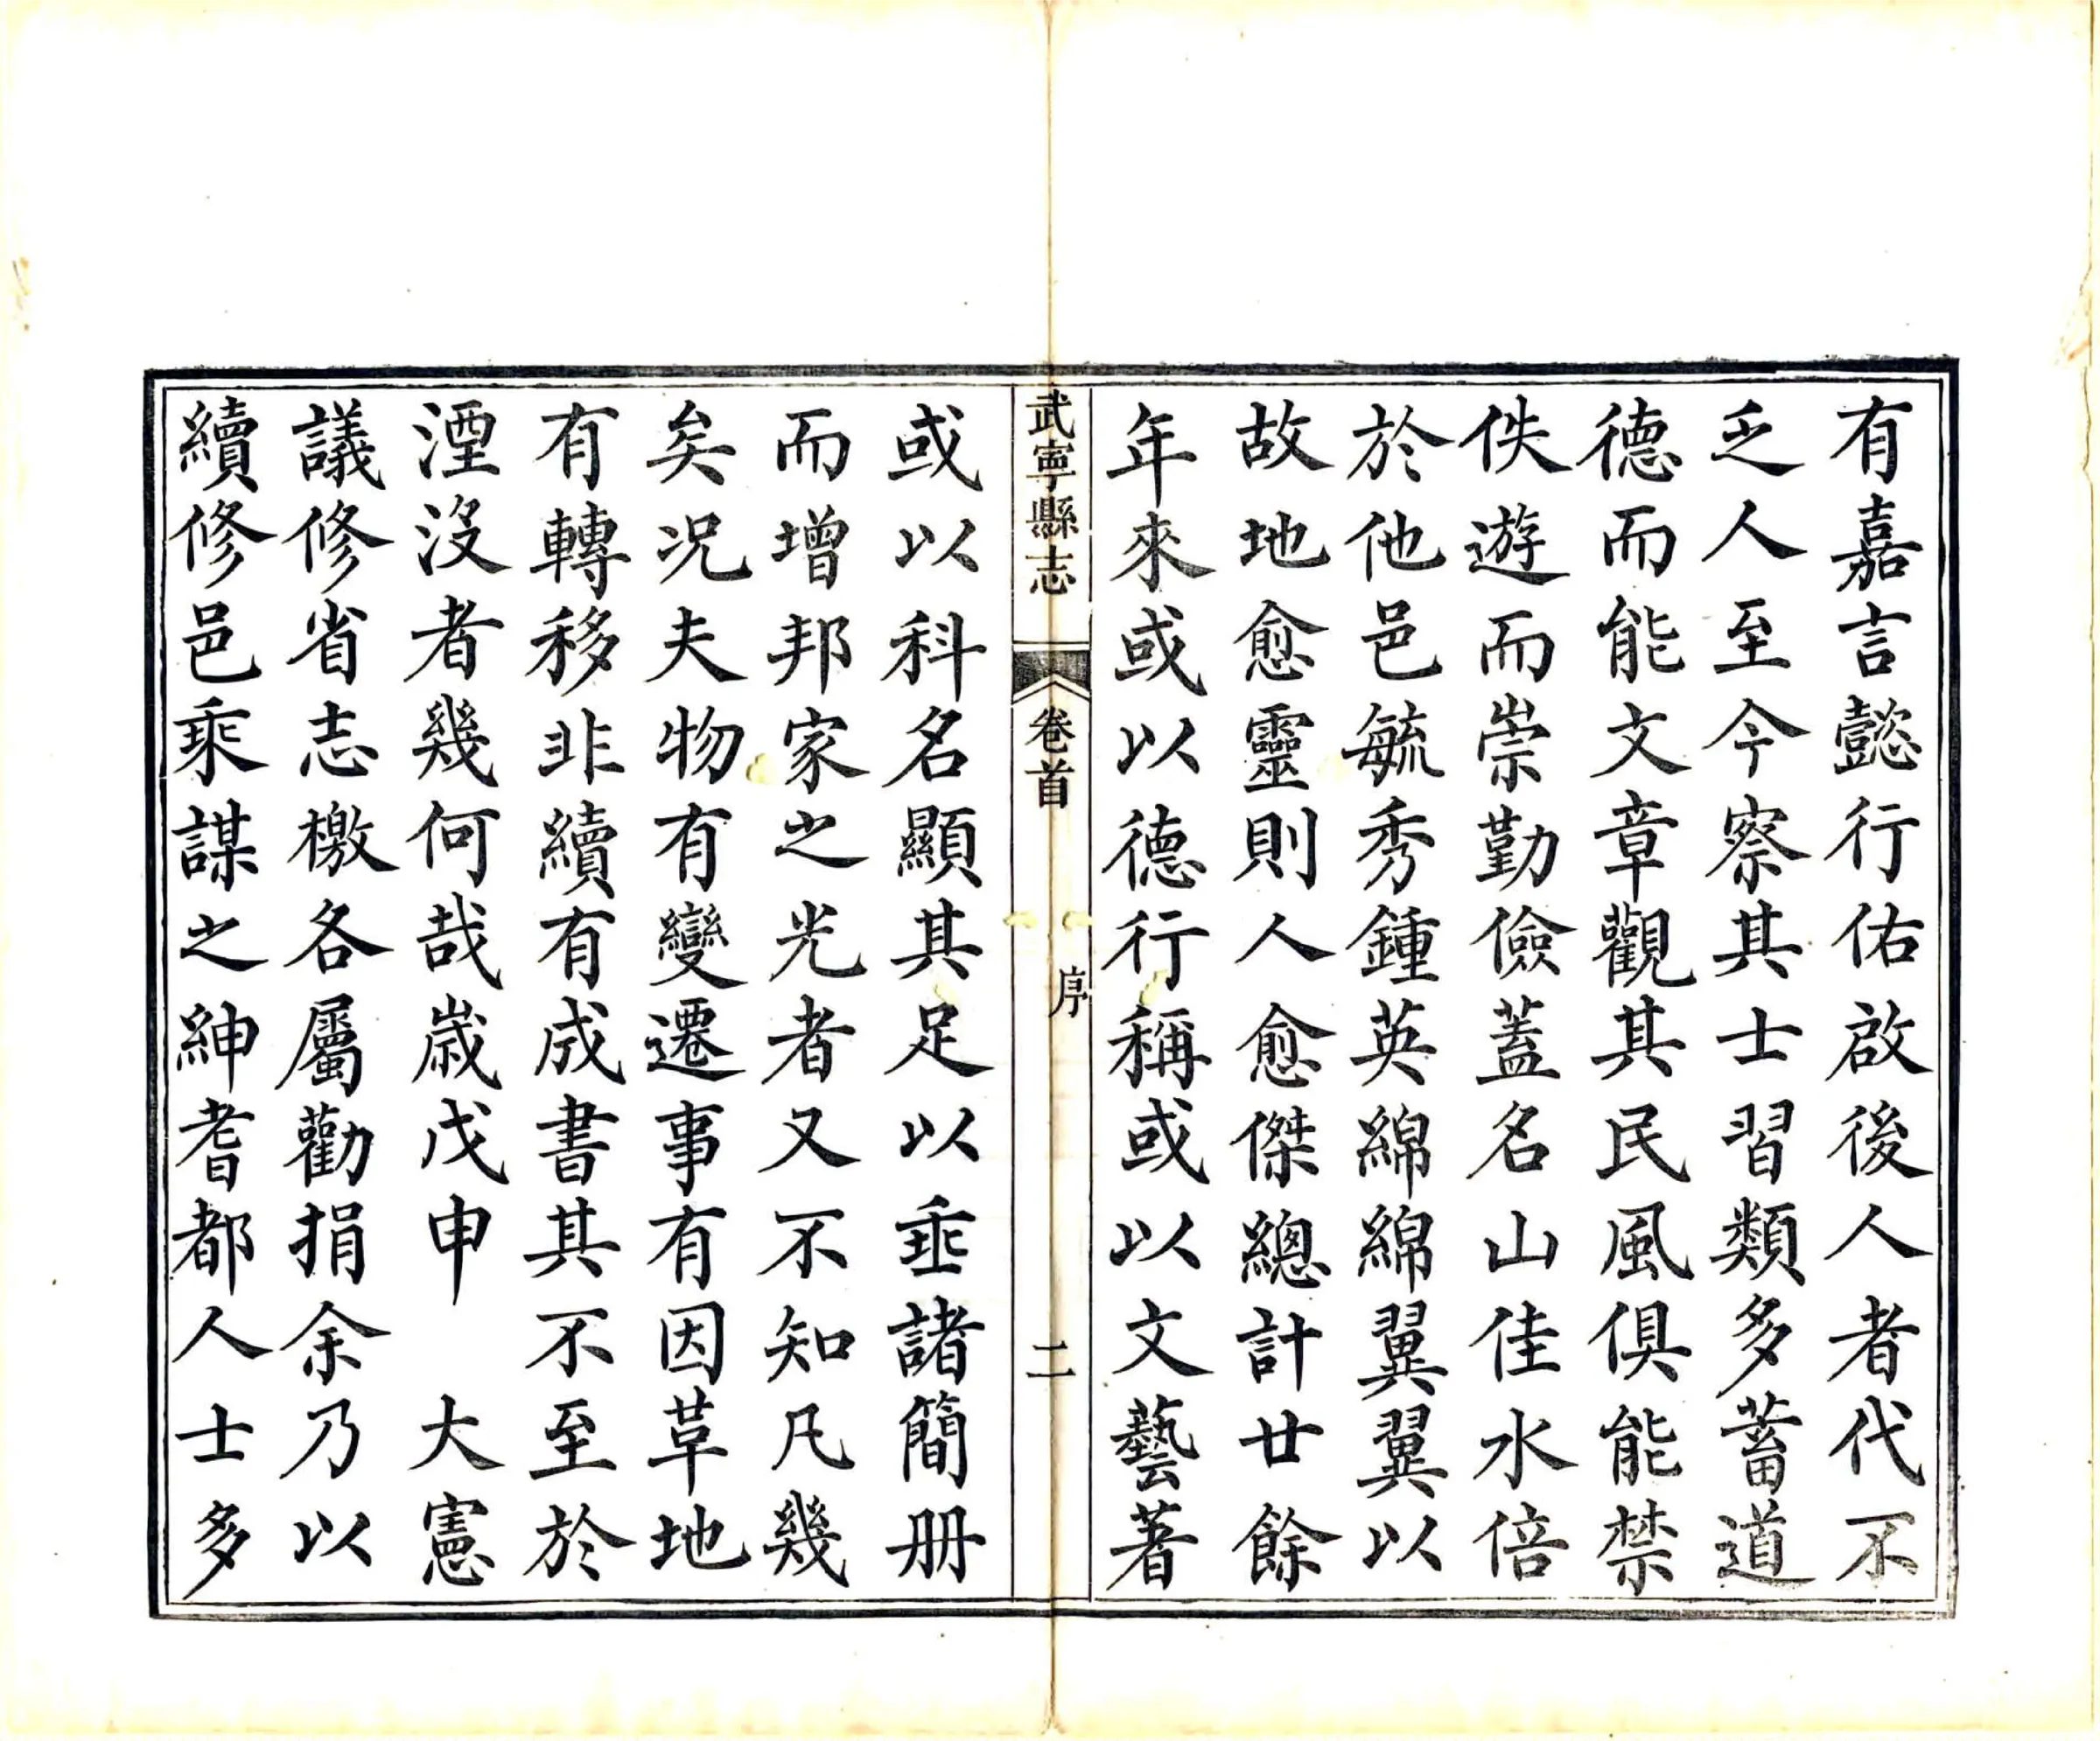 有嘉言懿行佑啟後人者代不
乏人至今察其士習類多蓄道
德而能文章觀其民風俱能禁
佚遊而崇勤儉蓋名山佳水倍
於他邑毓秀鍾英綿綿翼翼以
故地愈靈則人愈傑總計廿餘
年來或以德行稱或以文藝著
武寧縣志
卷首
序
二
或以科名顯其足以垂諸簡册
而增邦家之光者又不知凡幾
矣況夫物有變遷事有因革地
有轉移非續有成書其不至於
湮沒者幾何哉歲戊申 大憲
議修省志檄各屬勸捐余乃以
續修邑乘謀之紳耆都人士多